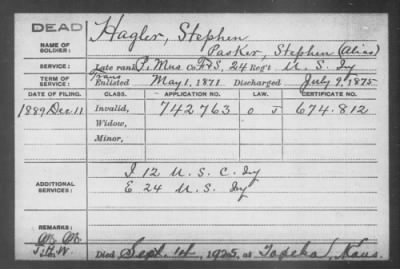 DEAD
Hagler, Stephen
NAME OF SOLDIER:
Parker, Stephen (Alias)
SERVICE: Late rank P. Mus Co. F&S, 24 Reg't U. S. Iy
TERM OF SERVICE: Trans Enlisted May 1, 1871. Discharged July 9, 1875
DATE OF FILING. CLASS. APPLICATION NO. LAW. CERTIFICATE NO.
1889 Dec. 11 Invalid, 742763 674.812
Widow,
Minor,
I 12 U. S. C. Iy
ADDITIONAL SERVICES:
E 24 U. S. Iy
REMARKS:
Died Sept. 14, 1925, at Topeka, Kans.